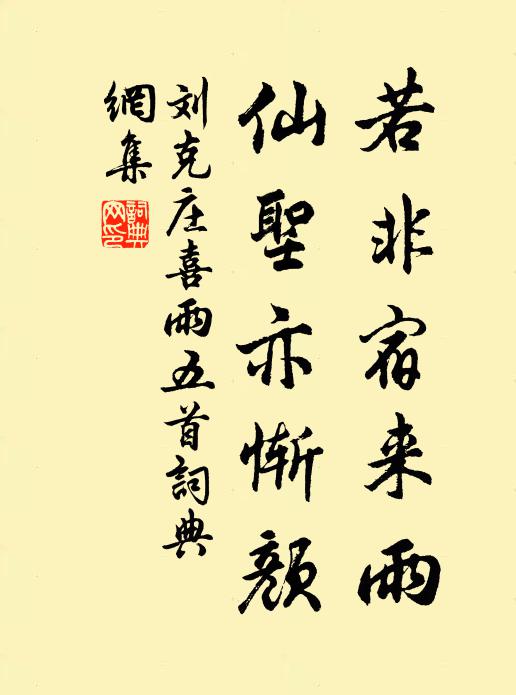 若非宵来雨
仙聖亦惭顔
刘克庄喜雨五首詞典
網集
詞典
网印